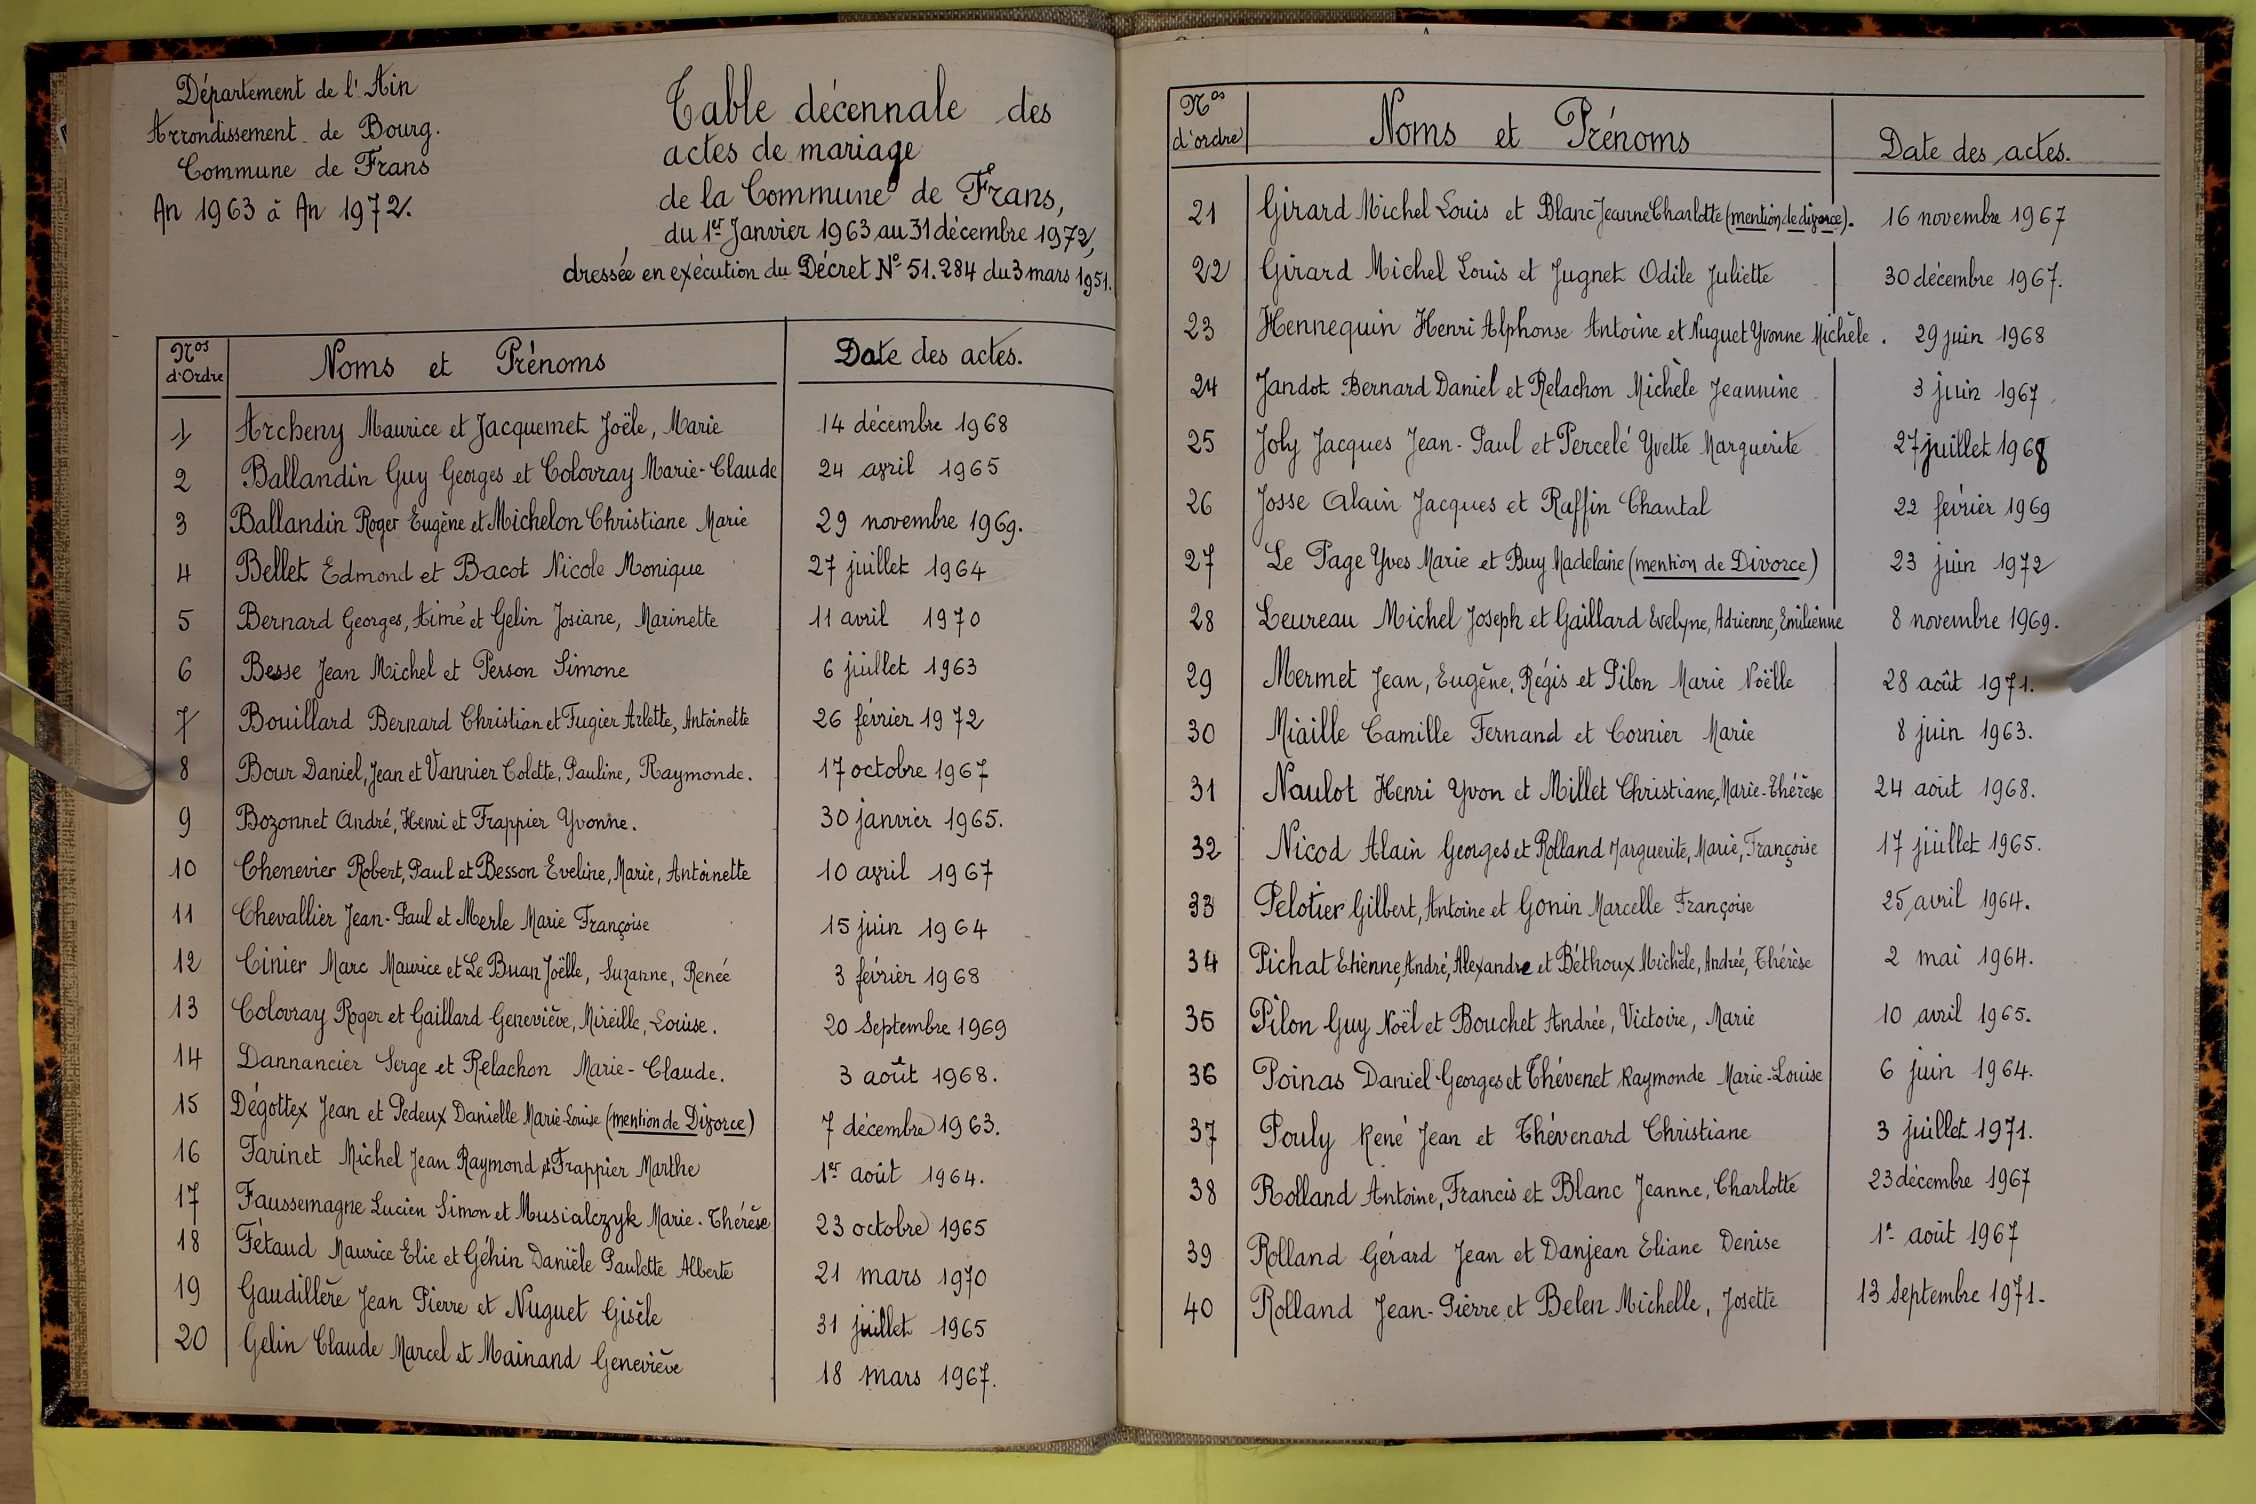 Département de l'Ain
Arrondissement de Bourg.
Commune de Frans
An 1963 à An 1972.
Table décennale des
actes de mariage
de la Commune de Frans,
du 1er Janvier 1963 au 31 décembre 1972,
dressée en exécution du Décret No 51.284 du 3 mars 1951.
Nos d'Ordre Noms et Prénoms Date des actes.
1 Archeny Maurice et Jacquemet Joële, Marie 14 décembre 1968
2 Ballandin Guy Georges et Colovray Marie-Claude 24 avril 1965
3 Ballandin Roger Eugène et Michelon Christiane Marie 29 novembre 1969.
4 Bellet Edmond et Bacot Nicole Monique 27 juillet 1964
5 Bernard Georges, Aimé et Gelin Josiane, Marinette 11 avril 1970
6 Besse Jean Michel et Person Simone 6 juillet 1963
7 Bouillard Bernard Christian et Fugier Arlette, Antoinette 26 février 1972
8 Bour Daniel, Jean et Vannier Colette, Pauline, Raymonde. 17 octobre 1967
9 Bozonnet André, Henri et Frappier Yvonne. 30 janvier 1965.
10 Chenevier Robert, Paul et Besson Eveline, Marie, Antoinette 10 avril 1967
11 Chevallier Jean-Paul et Merle Marie Françoise 15 juin 1964
12 Cinier Marc Maurice et Le Buan Joëlle, Suzanne, Renée 3 février 1968
13 Colovray Roger et Gaillard Geneviève, Mireille, Louise. 20 Septembre 1969
14 Dannancier Serge et Relachon Marie-Claude. 3 août 1968.
15 Dégottex Jean et Pedeux Danielle Marie-Louise (mention de Divorce) 7 décembre 1963.
16 Farinet Michel Jean Raymond & Frappier Marthe 1er août 1964.
17 Faussemagne Lucien Simon et Musialczyk Marie-Thérèse 23 octobre 1965
18 Fétaud Maurice Elie et Géhin Danièle Paulette Alberte 21 mars 1970
19 Gaudillère Jean Pierre et Nuguet Gisèle 31 juillet 1965
20 Gelin Claude Marcel et Mainand Geneviève 18 mars 1967.
Nos d'ordre Noms et Prénoms Date des actes.
21 Girard Michel Louis et Blanc Jeanne Charlotte (mention de divorce). 16 novembre 1967
22 Girard Michel Louis et Jugnet Odile Juliette 30 décembre 1967.
23 Hennequin Henri Alphonse Antoine et Nuguet Yvonne Michèle. 29 juin 1968
24 Jandot Bernard Daniel et Relachon Michèle Jeannine 3 juin 1967
25 Joly Jacques Jean-Paul et Percelé Yvette Marguerite 27 juillet 1968
26 Josse Alain Jacques et Raffin Chantal 22 février 1969
27 Le Page Yves Marie et Buy Madelaine (mention de Divorce) 23 juin 1972
28 Leureau Michel Joseph et Gaillard Evelyne, Adrienne, Emilienne 8 novembre 1969.
29 Mermet Jean, Eugène, Régis et Pilon Marie Noëlle 28 août 1971.
30 Miaille Camille Fernand et Cornier Marie 8 juin 1963.
31 Naulot Henri Yvon et Millet Christiane, Marie-Thérèse 24 août 1968.
32 Nicod Alain Georges et Rolland Marguerite, Marie, Françoise 17 juillet 1965.
33 Pelotier Gilbert, Antoine et Gonin Marcelle Françoise 25 avril 1964.
34 Pichat Etienne, André, Alexandre et Béthoux Michèle, Andrée, Thérèse 2 mai 1964.
35 Pilon Guy Noël et Bouchet Andrée, Victoire, Marie 10 avril 1965.
36 Poinas Daniel-Georges et Thévenet Raymonde Marie-Louise 6 juin 1964.
37 Pouly René Jean et Thévenard Christiane 3 juillet 1971.
38 Rolland Antoine, Francis et Blanc Jeanne, Charlotte 23 décembre 1967
39 Rolland Gérard Jean et Danjean Eliane Denise 1er août 1967
40 Rolland Jean-Pierre et Belen Michelle, Josette 13 Septembre 1971.